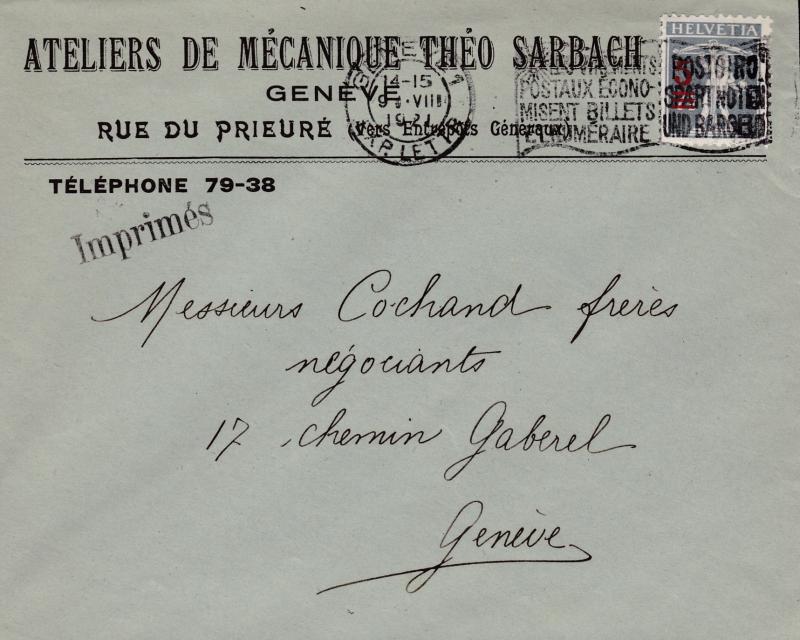 ATELIERS DE MÉCANIQUE THÉO SARBACH
GENÈVE
RUE DU PRIEURÉ (Vers Entrepôts Généraux)
TÉLÉPHONE 79-38
Imprimés
14-15
VIII
POSTAUX ÉCONO-
MISENT BILLETS
NUMÉRAIRE
HELVETIA
POSTGIRO
SPART NOTEN
UND BARGELD
Messieurs Cochand frères
négociants
17 chemin Gaberel
Genève